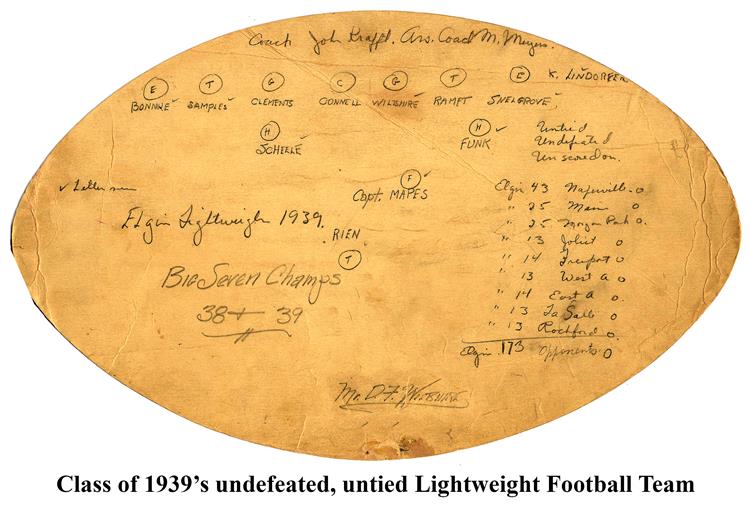 Coach John Krafft. Ass. Coach M. Meyers.
E T G C G T E K. LINDORFER
BONNKE ✓ SAMPLES ✓ CLEMENTS CONNELL ✓ WILTSHIRE ✓ RAMFT ✓ SNELGROVE ✓
H H ✓ Untied
SCHEELE FUNK Undefeated
Unscoredon.
F ✓
✓ Letter men Capt. MAPES
Elgin Lightweight 1939.
RIEN
T
Big Seven Champs
38 + 39
Elgin 43 Naperville 0
" 25 Main 0
" 25 Morgan Park 0.
" 13 Joliet 0
" 14 Freeport 0
" 13 West A 0
" 14 East A 0.
" 13 La Salle 0
" 13 Rockford 0.
Elgin 173 Opponents 0
Mr. D.F.
Class of 1939's undefeated, untied Lightweight Football Team